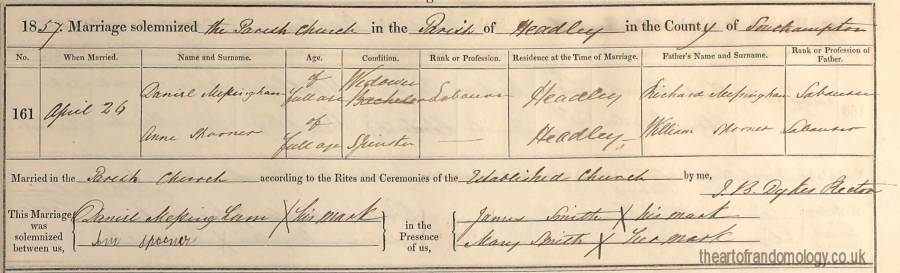 1857. Marriage solemnized the Parish Church in the Parish of Headley in the County of Southampton
No. When Married. Name and Surname. Age. Condition. Rank or Profession. Residence at the Time of Marriage. Father's Name and Surname. Rank or Profession of Father.
161 April 26 Daniel Messingham of full age Widower Bachelor Labourer Headley Richard Messingham Labourer
Anne Spooner of full age Spinster — Headley William Spooner Labourer
Married in the Parish Church according to the Rites and Ceremonies of the Established Church by me,
J. B. Dykes Rector
This Marriage was solemnized between us, Daniel Messing ham X his mark in the Presence of us, James Smith X his mark
Ann Spooner Mary Smith X her mark
theartofrandomology.co.uk